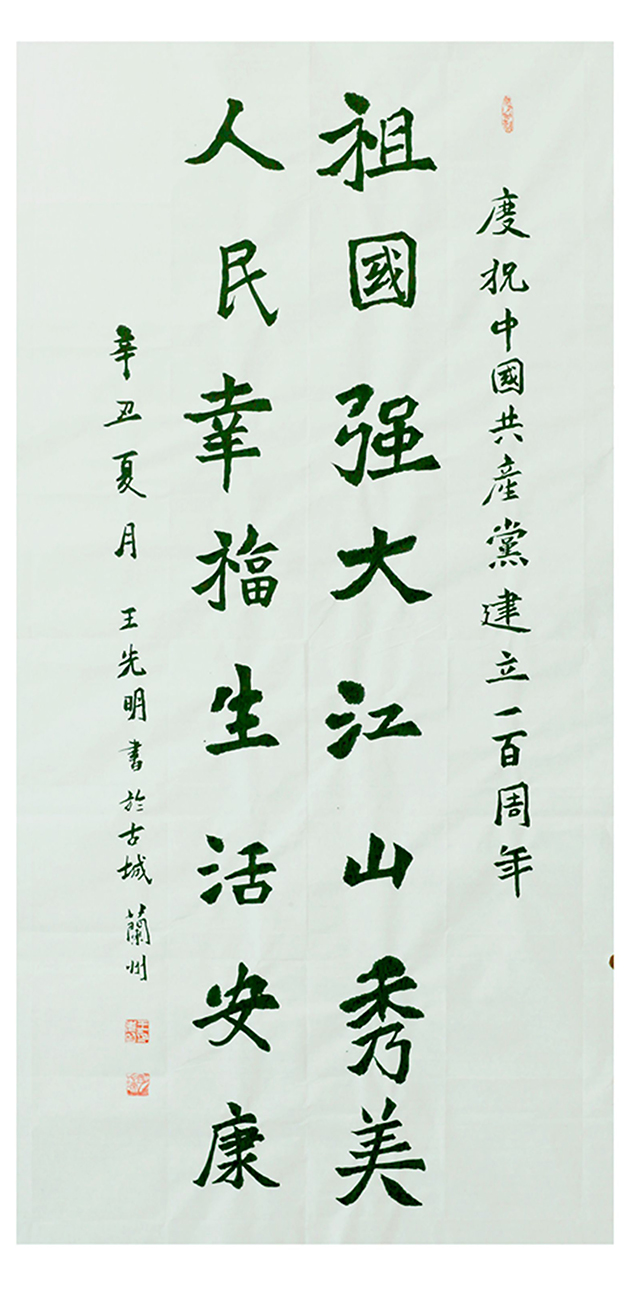 慶祝中國共產黨建立一百周年
祖國强大江山秀美
人民幸福生活安康
辛丑夏月 王先明書於古城蘭州